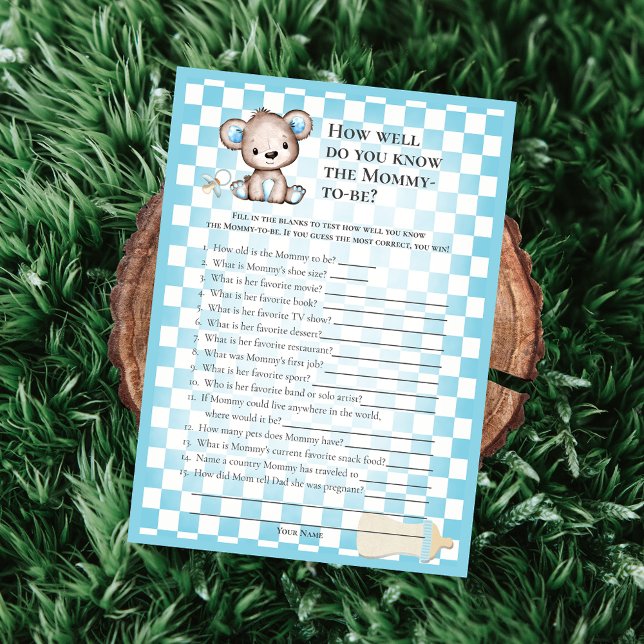 How well
do you know
the Mommy-
to-be?
Fill in the blanks to test how well you know
the Mommy-to-be. If you guess the most correct, you win!
1. How old is the Mommy to be?
2. What is Mommy's shoe size?
3. What is her favorite movie?
4. What is her favorite book?
5. What is her favorite TV show?
6. What is her favorite dessert?
7. What is her favorite restaurant?
8. What was Mommy's first job?
9. What is her favorite sport?
10. Who is her favorite band or solo artist?
11. If Mommy could live anywhere in the world,
where would it be?
12. How many pets does Mommy have?
13. What is Mommy's current favorite snack food?
14. Name a country Mommy has traveled to
15. How did Mom tell Dad she was pregnant?
Your Name